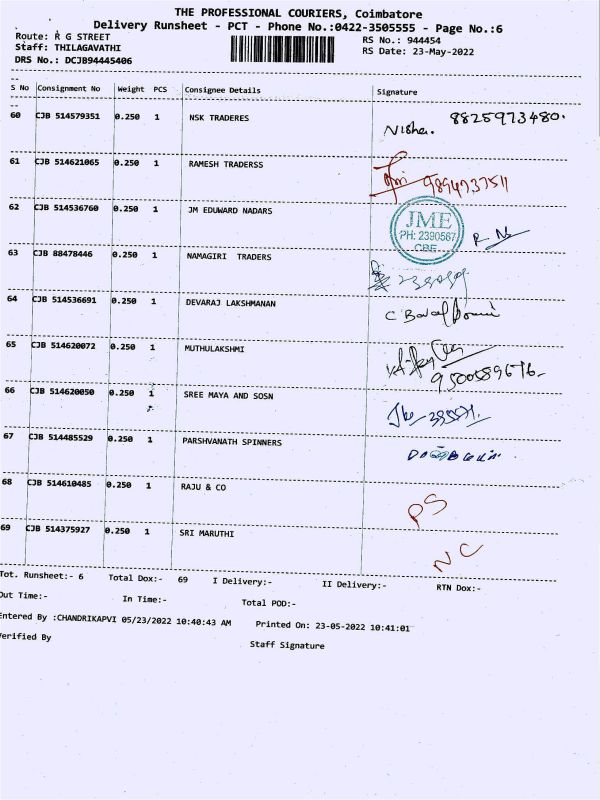 THE PROFESSIONAL COURIERS, Coimbatore
Delivery Runsheet - PCT - Phone No.:0422-3505555 - Page No.:6
Route: R G STREET RS No.: 944454
Staff: THILAGAVATHI RS Date: 23-May-2022
DRS No.: DCJB94445406
S No Consignment No Weight PCS Consignee Details Signature
60 CJB 514579351 0.250 1 NSK TRADERES Nisha. 8825973480.
61 CJB 514621065 0.250 1 RAMESH TRADERSS
62 CJB 514536760 0.250 1 JM EDUWARD NADARS
JME
PH: 2390567
CBE
63 CJB 88478446 0.250 1 NAMAGIRI TRADERS
64 CJB 514536691 0.250 1 DEVARAJ LAKSHMANAN
65 CJB 514620072 0.250 1 MUTHULAKSHMI
66 CJB 514620050 0.250 1 SREE MAYA AND SOSN
67 CJB 514485529 0.250 1 PARSHVANATH SPINNERS
68 CJB 514610485 0.250 1 RAJU & CO PS
69 CJB 514375927 0.250 1 SRI MARUTHI NC
Tot. Runsheet:- 6 Total Dox:- 69 I Delivery:- II Delivery:- RTN Dox:-
Out Time:- In Time:- Total POD:-
Entered By :CHANDRIKAPVI 05/23/2022 10:40:43 AM Printed On: 23-05-2022 10:41:01
Verified By Staff Signature